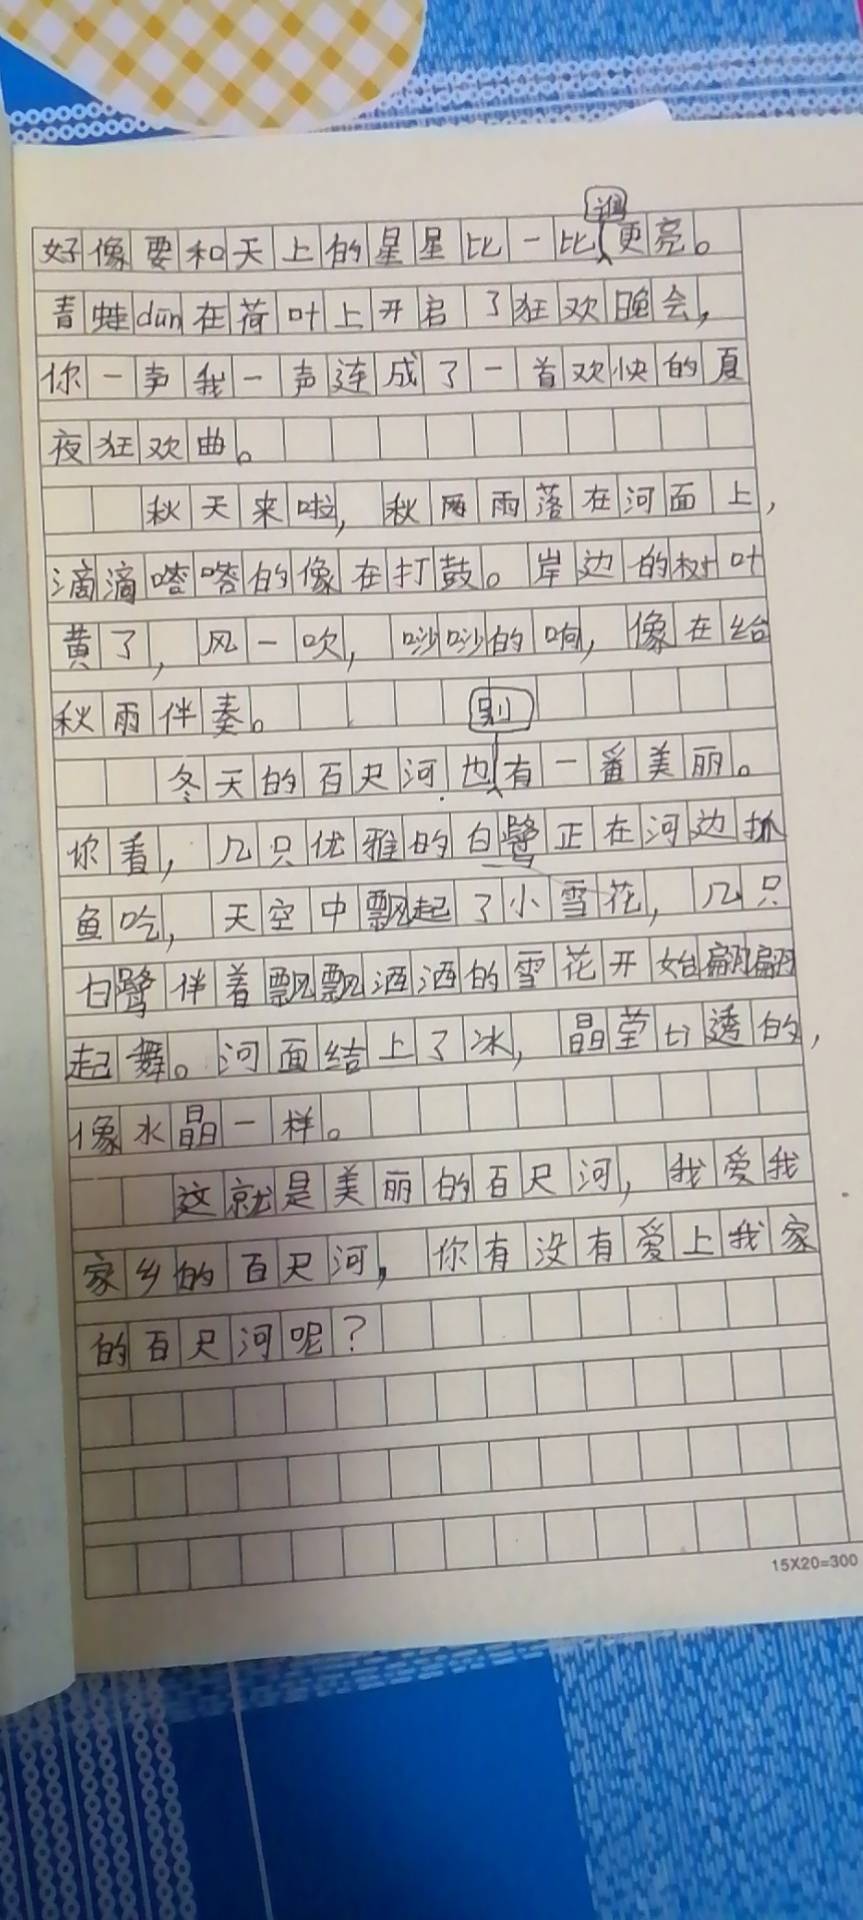 好像要和天上的星星比一比谁更亮。
青蛙dūn在荷叶上开启了狂欢晚会，
你一声我一声连成了一首欢快的夏
夜狂欢曲。
秋天来啦，秋雨落在河面上，
滴滴嗒嗒的像在打鼓。岸边的树叶
黄了，风一吹，唦唦的响，像在给
秋雨伴奏。
冬天的百尺河也别有一番美丽。
你看，几只优雅的白鹭正在河边抓
鱼吃，天空中飘起了小雪花，几只
白鹭伴着飘飘洒洒的雪花开始翩翩
起舞。河面结上了冰，晶莹切透的，
像水晶一样。
这就是美丽的百尺河，我爱我
家乡的百尺河，你有没有爱上我家
的百尺河呢？
15X20=300